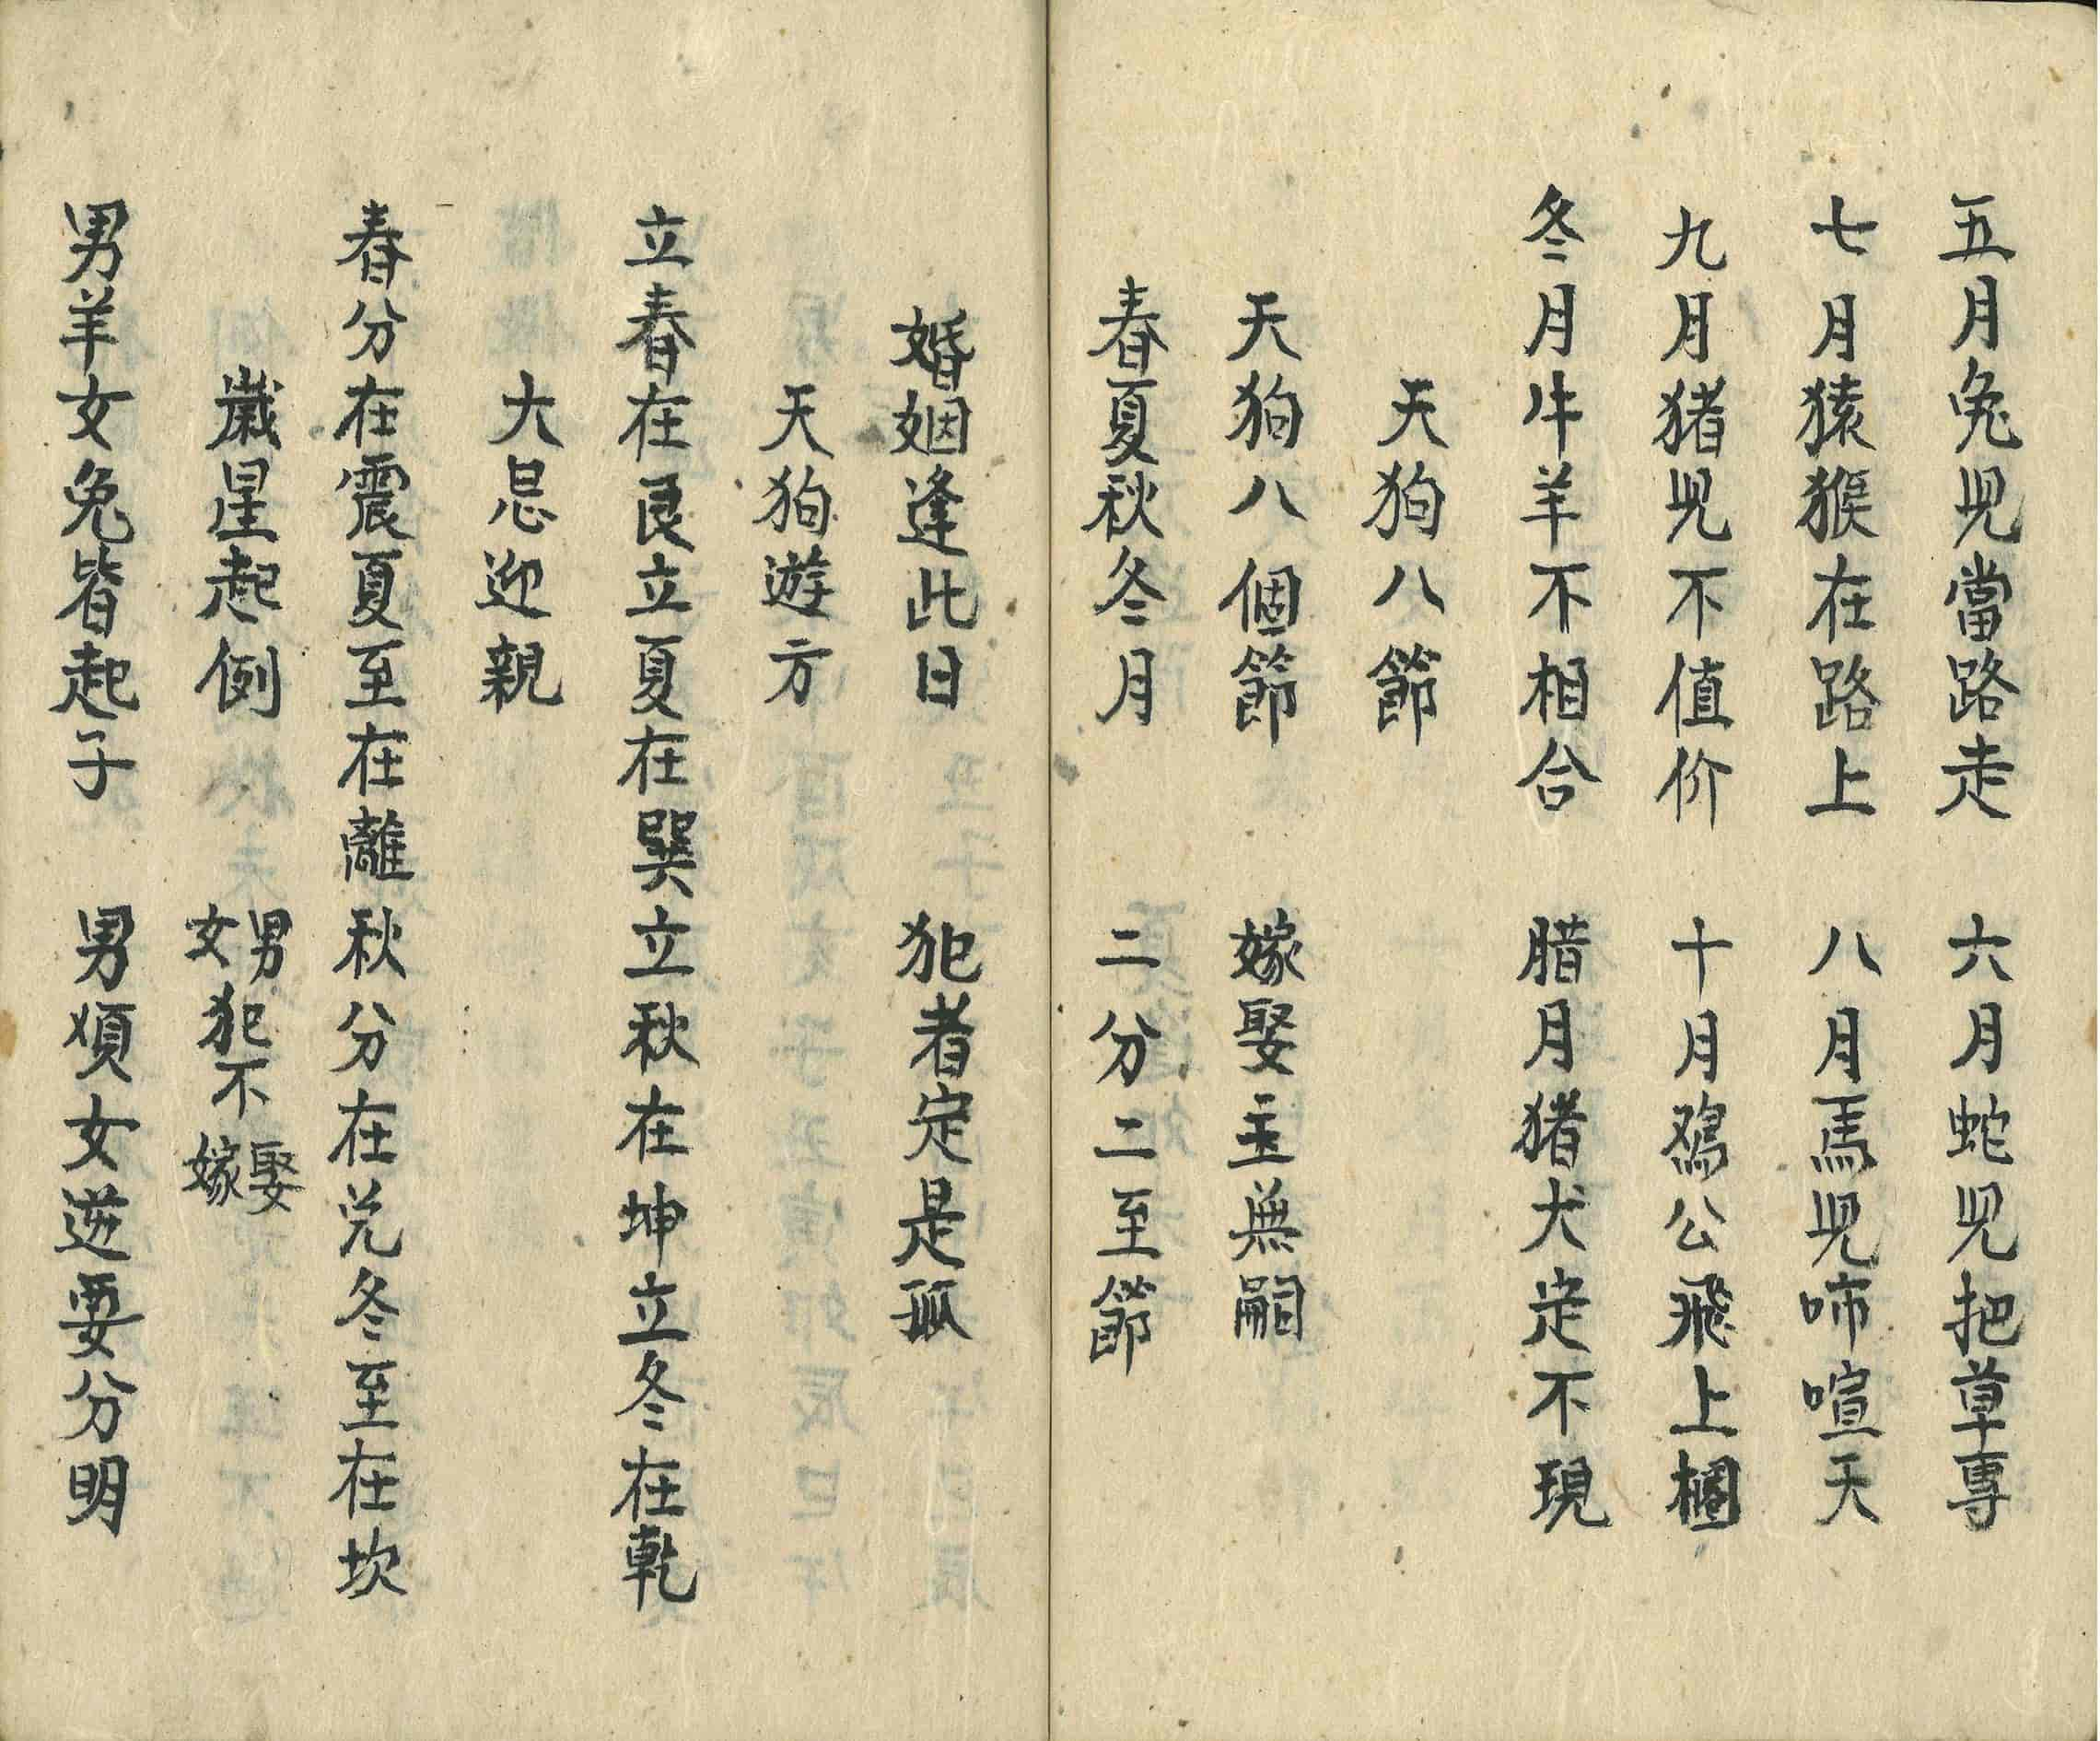 五月兔児當路走　六月蛇児把草專
七月猿猴在路上　八月馬児啼喧天
九月猪児不值价　十月鸡公飛上樻
冬月牛羊不相合　腊月猪犬定不現
天狗八節
天狗八個節　嫁娶主無嗣
春夏秋冬月　二分二至節
婚姻逢此日　犯者定是孤
天狗遊方
立春在艮立夏在巽立秋在坤立冬在乾
大忌迎親
春分在震夏至在離秋分在兑冬至在坎
歲星起例　男女犯不娶嫁
男羊女兔皆起子　男順女逆要分明